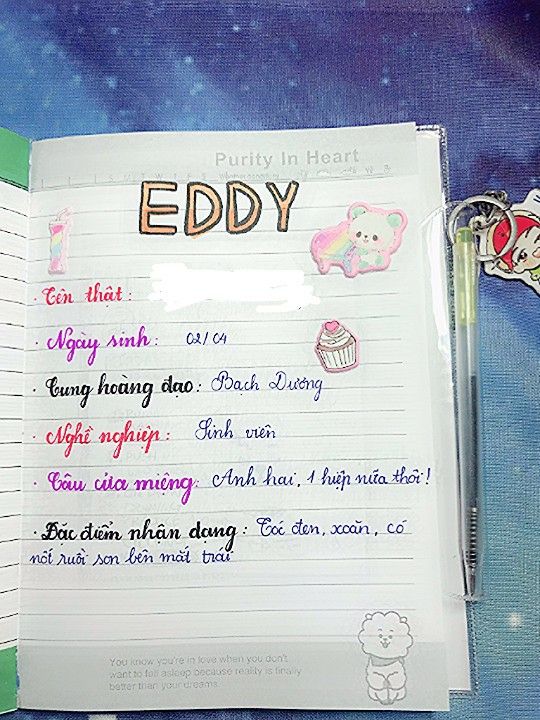 Purity In Heart
EDDY
· Tên thật:
· Ngày sinh: 02/04
· Cung hoàng đạo: Bạch Dương
· Nghề nghiệp: Sinh viên
· Câu cửa miệng: Anh hai, 1 hiệp nữa thôi!
· Đặc điểm nhận dạng: Tóc đen, xoăn, có
nốt ruồi son bên mắt trái
You know you're in love when you don't
want to fall asleep because reality is finally
better than your dreams.